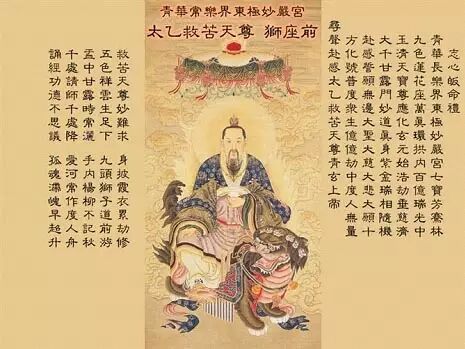 青華常樂界東極妙嚴宮
太乙救苦天尊 獅座前
志心皈命禮
青華長樂界東極妙嚴宮七寶芳騫林
九色蓮花座萬真環拱內百億瑞光中
玉清天寶尊應化玄元始浩劫垂慈濟
大千甘露門妙道真身紫金瑞相隨機
赴感誓願無邊大聖大慈大悲大願十
方化號普度眾生億億劫中度人無量
尋聲赴感太乙救苦天尊青玄上帝
救苦天尊妙難求 身披霞衣累劫修
五色祥雲生足下 九頭獅子道前游
盂中甘露時常灑 手內楊柳不記秋
千處請師千處降 愛河常作度人舟
誦經功德不思議 孤魂滯魄早超升